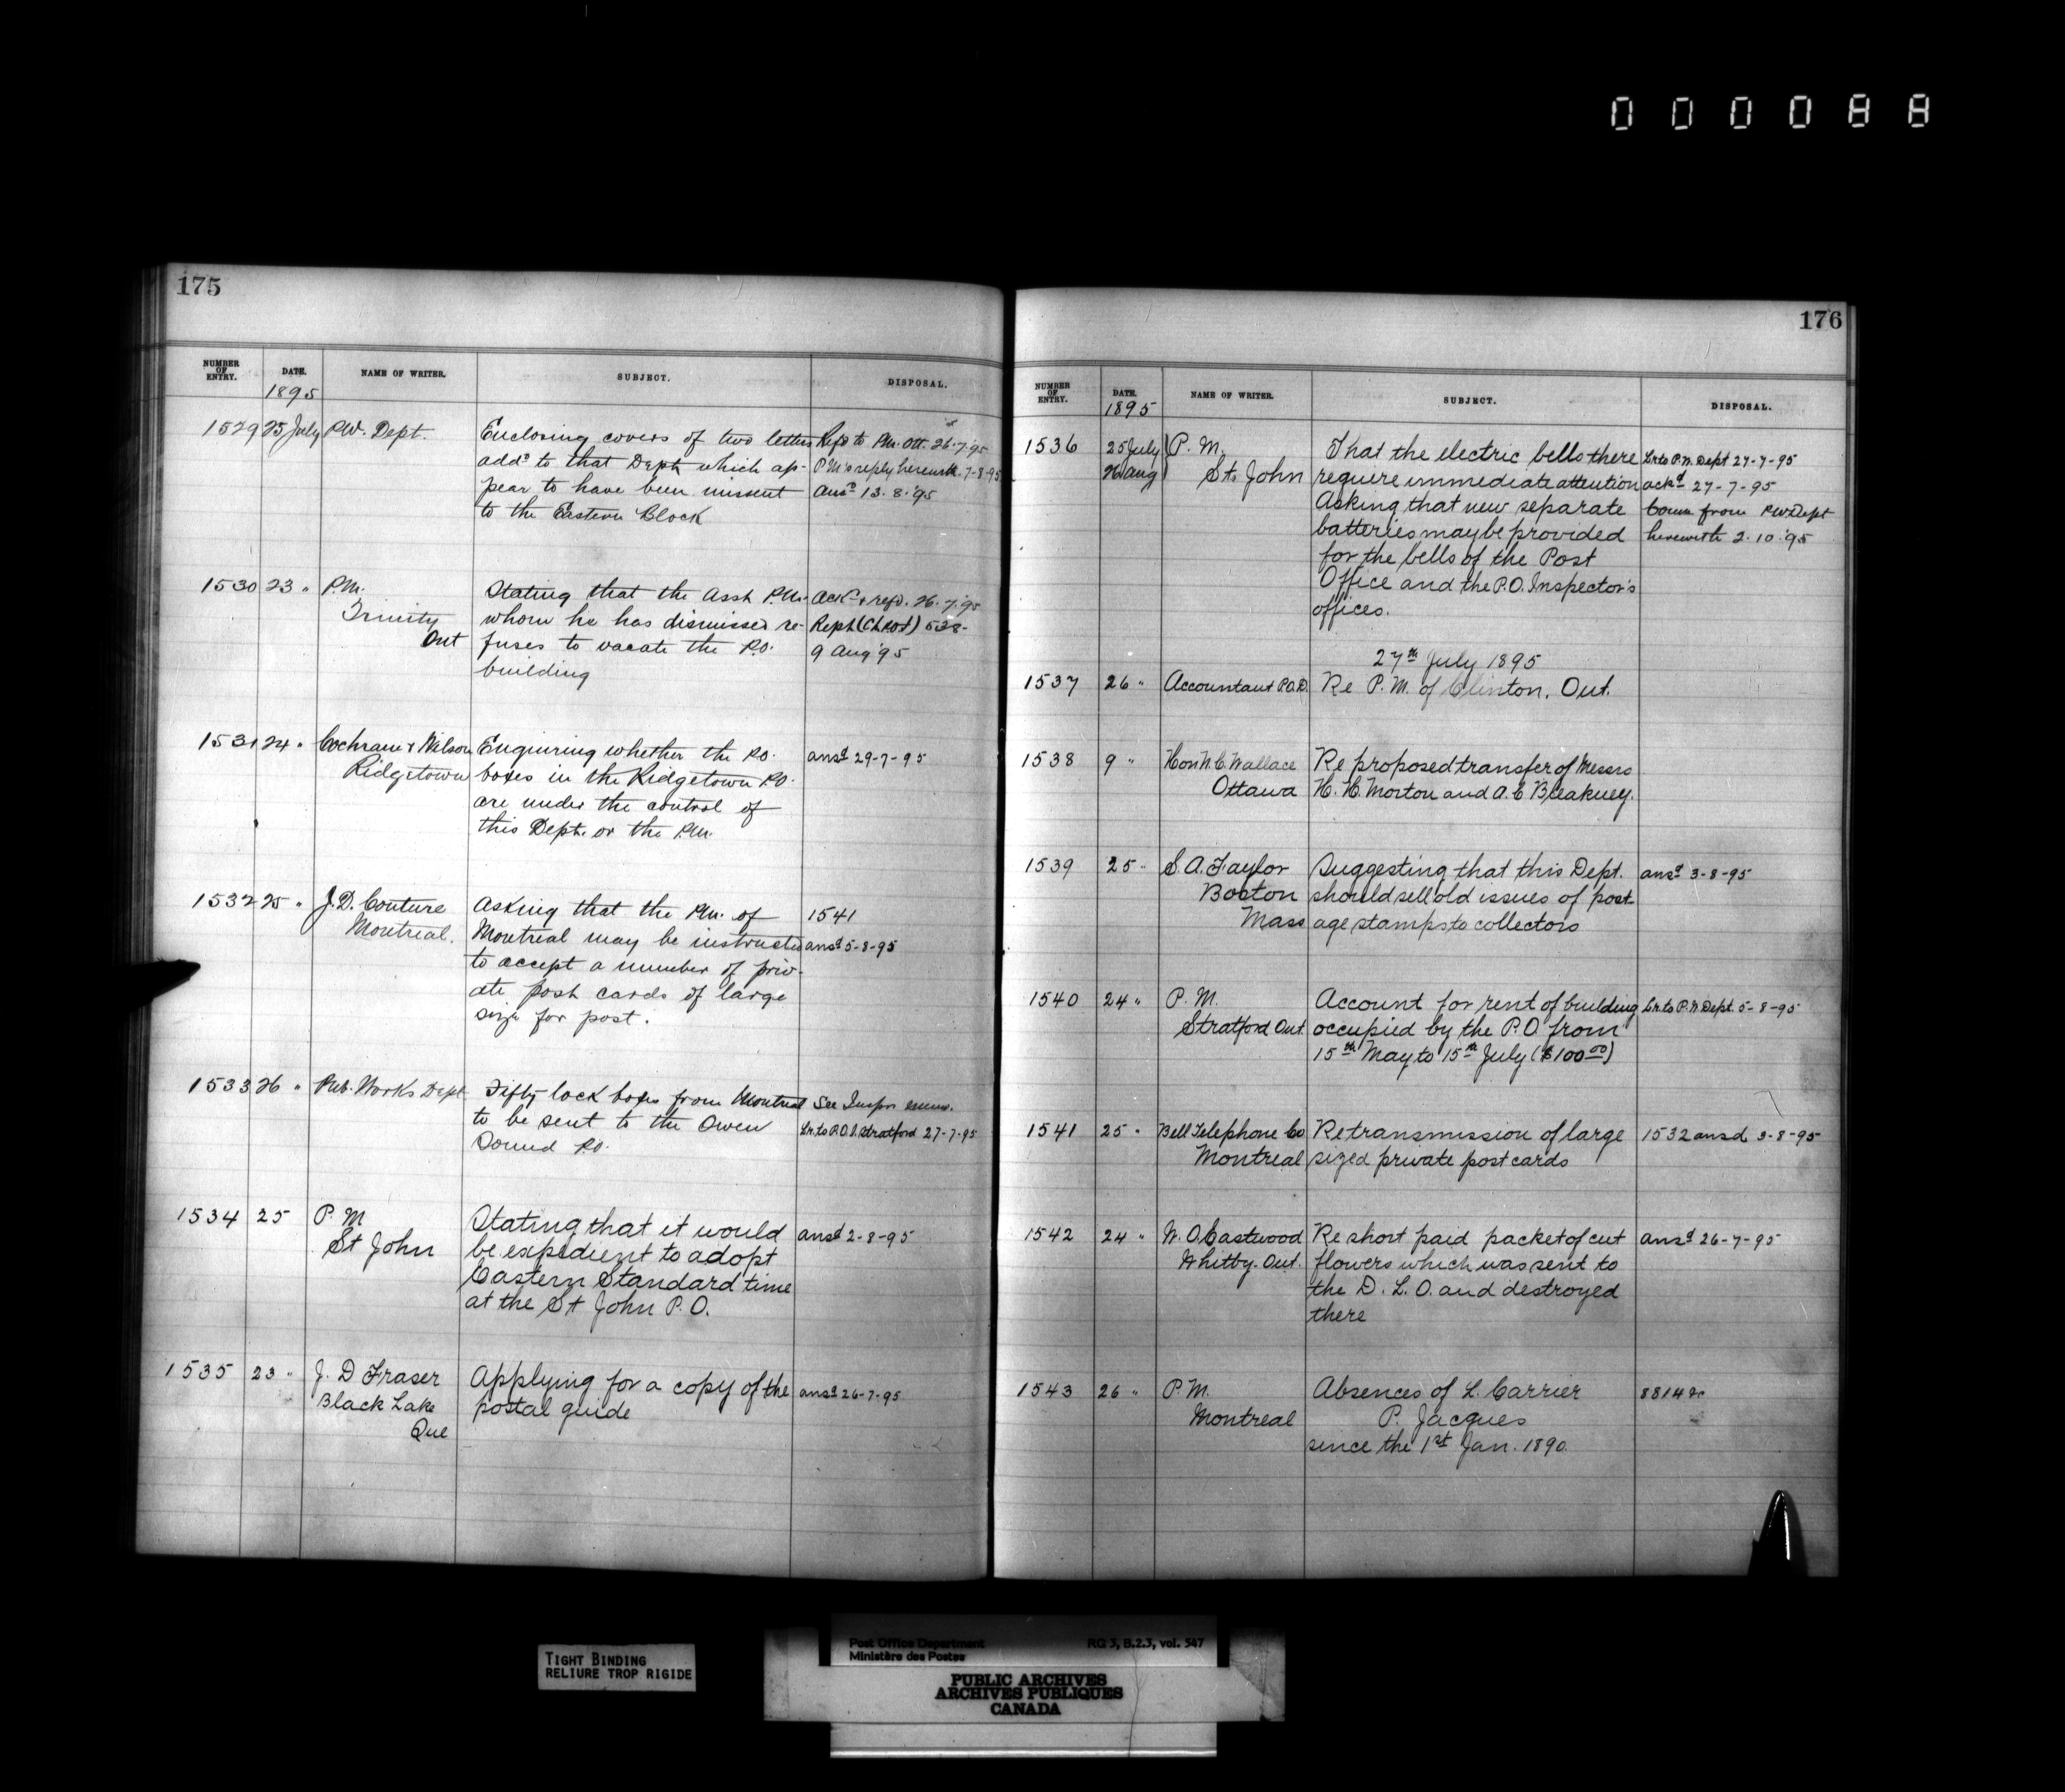 000088
175
NUMBER OF ENTRY. DATE. NAME OF WRITER. SUBJECT. DISPOSAL.
1895
1529 25 July P.W. Dept. Enclosing covers of two letters Refd to P.M. Ott. 26.7.95
addd to that Dept. which ap- P.M's reply herewith. 7-8-95
pear to have been missent Ansd 13.8.'95
to the Eastern Block
1530 23 " P.M. Stating that the Asst P.M. Ackd & refd. 26.7.95
Trinity whom he has dismissed re- Rept 538-
Ont fuses to vacate the P.O. 9 Aug '95
building
1531 24 " Cochrane & Wilson Enquiring whether the P.O. ansd 29-7-95
Ridgetown boxes in the Ridgetown P.O.
are under the control of
this Dept. or the P.M.
1532 25 " J.D. Couture Asking that the P.M. of 1541
Montreal. Montreal may be instructed ansd 5-8-95
to accept a number of priv-
ate post cards of large
size for post.
1533 26 " Pub. Works Dept Fifty lock boxes from Montreal See Inspr memo.
to be sent to the Owen Lr. to P.O.I. Stratford 27-7-95
Sound P.O.
1534 25 P. M Stating that it would ansd 2-8-95
St John be expedient to adopt
Eastern Standard time
at the St John P. O.
1535 23 " J. D Fraser Applying for a copy of the ansd 26-7-95
Black Lake postal guide
Que
176
NUMBER OF ENTRY. DATE. NAME OF WRITER. SUBJECT. DISPOSAL.
1895
1536 25 July P. M. That the electric bells there Lr to P.W. Dept 27-7-95
26 Aug St. John require immediate attention ackd 27-7-95
Asking that new separate Comn from P.W. Dept
batteries may be provided herewith 2.10.'95
for the bells of the Post
Office and the P.O. Inspector's
offices.
27th July 1895
1537 26 " Accountant P.O.D. Re P. M. of Clinton, Ont.
1538 9 " Hon N. C. Wallace Re proposed transfer of Messrs
Ottawa H. H. Morton and A. C Bleakney.
1539 25 " S. A. Taylor Suggesting that this Dept. ansd 3-8-95
Boston should sell old issues of post-
Mass age stamps to collectors
1540 24 " P. M. Account for rent of building Lr. to P.W. Dept. 5-8-95
Stratford Ont. occupied by the P.O. from
15th May to 15th July ($100.00)
1541 25 " Bell Telephone Co Re transmission of large 1532 ansd 3-8-95
Montreal sized private post cards
1542 24 " W. O. Eastwood Re short paid packet of cut ansd 26-7-95
Whitby. Ont. flowers which was sent to
the D. L. O. and destroyed
there
1543 26 " P. M. Absences of L. Carrier
Montreal P. Jacques
since the 1st Jan. 1890
TIGHT BINDING
RELIURE TROP RIGIDE
Post Office Department RG 3, B.2.3, vol. 547
Ministère des Postes
PUBLIC ARCHIVES
ARCHIVES PUBLIQUES
CANADA